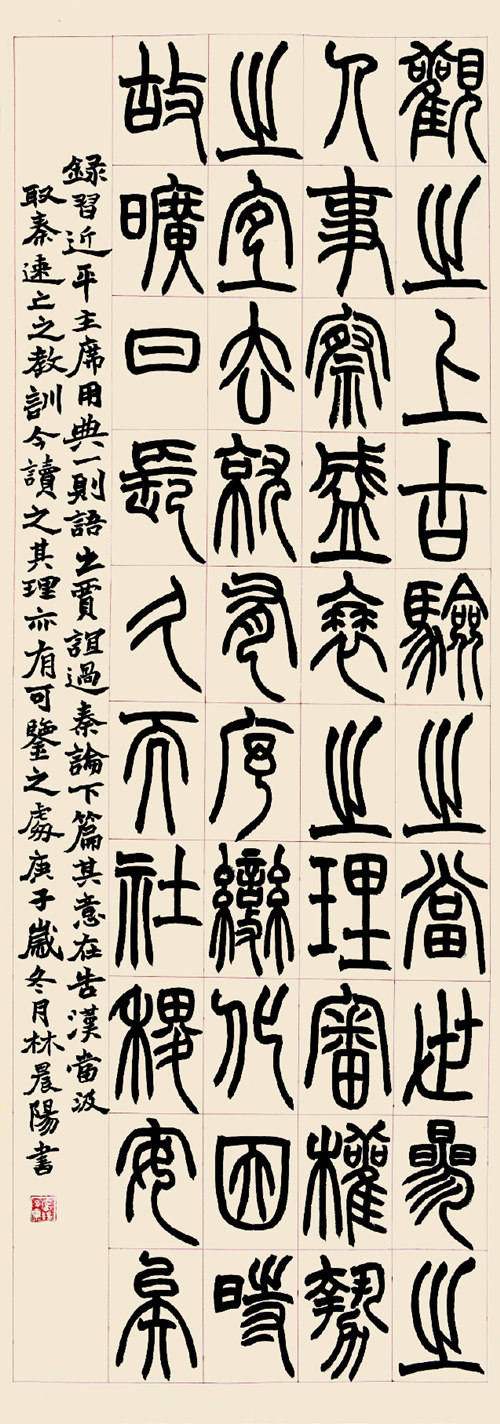 觀之上古驗之當世參之
人事察盛衰之理審權勢
之宜去就有序變化因時
故曠日長久而社稷安矣
録習近平主席用典一則語出賈誼過秦論下篇其意在告漢當汲
取秦速亡之教訓今讀之其理亦有可鑒之處庚子歲冬月林晨陽書